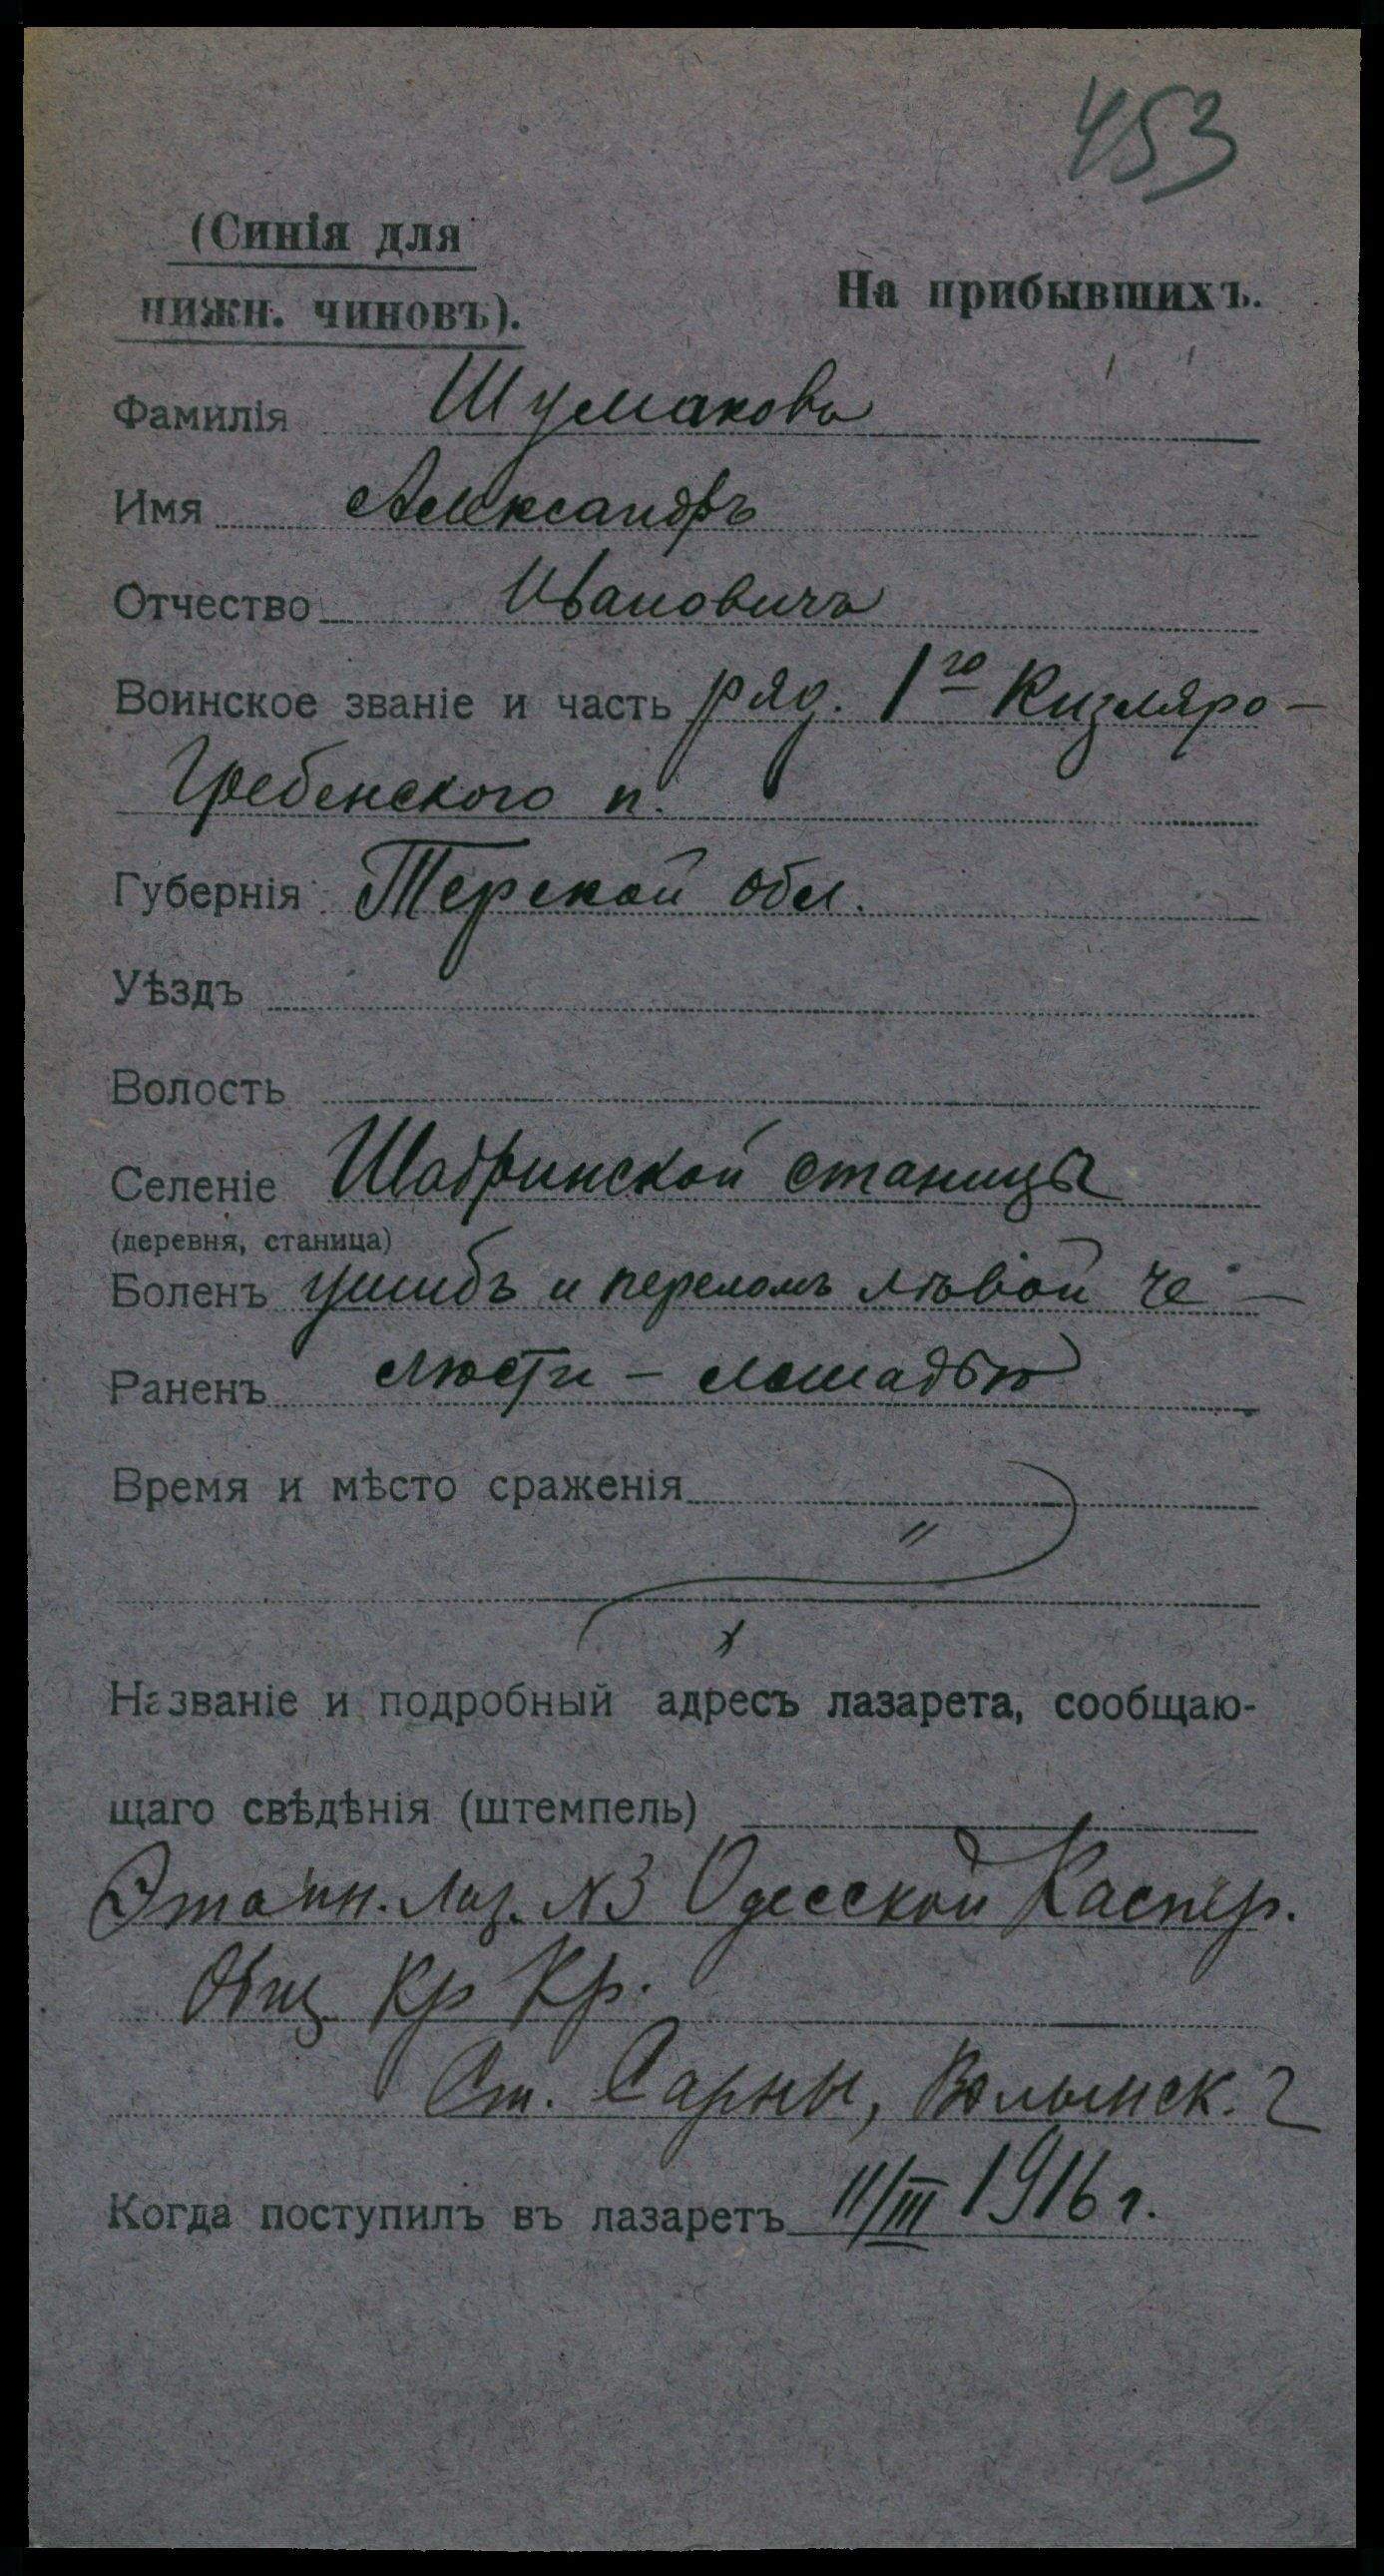 453
(Синія для
нижн. чиновъ).
На прибывшихъ.
Фамилія Шумаковъ
Имя Александръ
Отчество Ивановичъ
Воинское званіе и часть ряд. 1го Кизляро-
Гребенского п.
Губернія Терской обл.
Уѣздъ
Волость
Селеніе Шадринской станицы
(деревня, станица)
Боленъ ушибъ и переломъ лѣвой че-
Раненъ люсти - лошадью
Время и мѣсто сраженія
"
Названіе и подробный адресъ лазарета, сообщаю-
щаго свѣдѣнія (штемпель)
Этапн. Лаз. №3 Одесской Каспер.
Общ Кр Кр.
Ст. Сарны, Волынск. г
Когда поступилъ въ лазаретъ 11/III 1916 г.